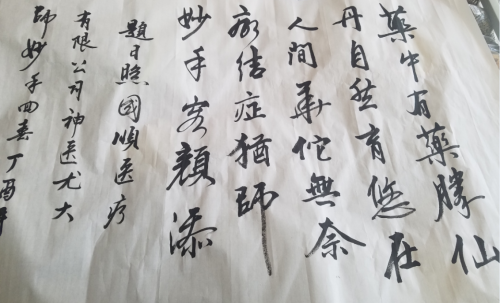 藥中有藥勝仙
丹自然有您在
人間華佗無奈
结症猶師
妙手容顏添
題日照國順医疗
有限公司神医尤大
師妙手回春丁酉年